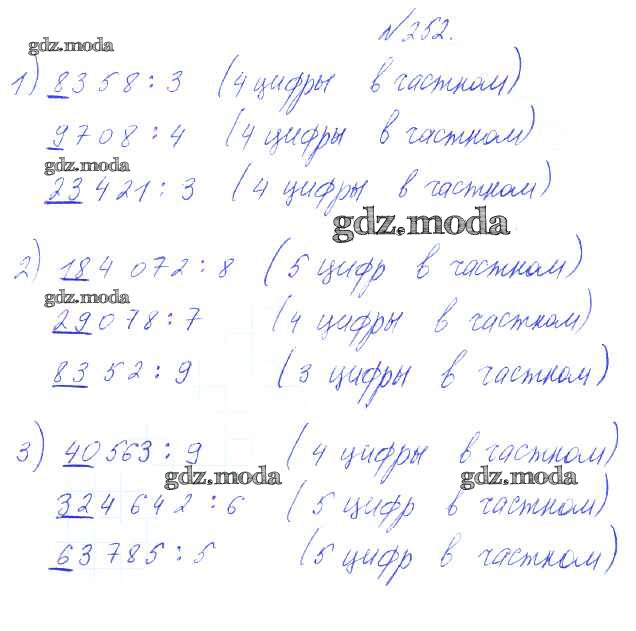 №252.
gdz.moda
1) 8358 : 3 (4 цифры в частном)
9708 : 4 (4 цифры в частном)
gdz.moda
23421 : 3 (4 цифры в частном)
gdz.moda
2) 184 072 : 8 (5 цифр в частном)
gdz.moda
29078 : 7 (4 цифры в частном)
8352 : 9 (3 цифры в частном)
3) 40563 : 9 (4 цифры в частном)
gdz.moda gdz.moda
324 642 : 6 (5 цифр в частном)
63785 : 5 (5 цифр в частном)